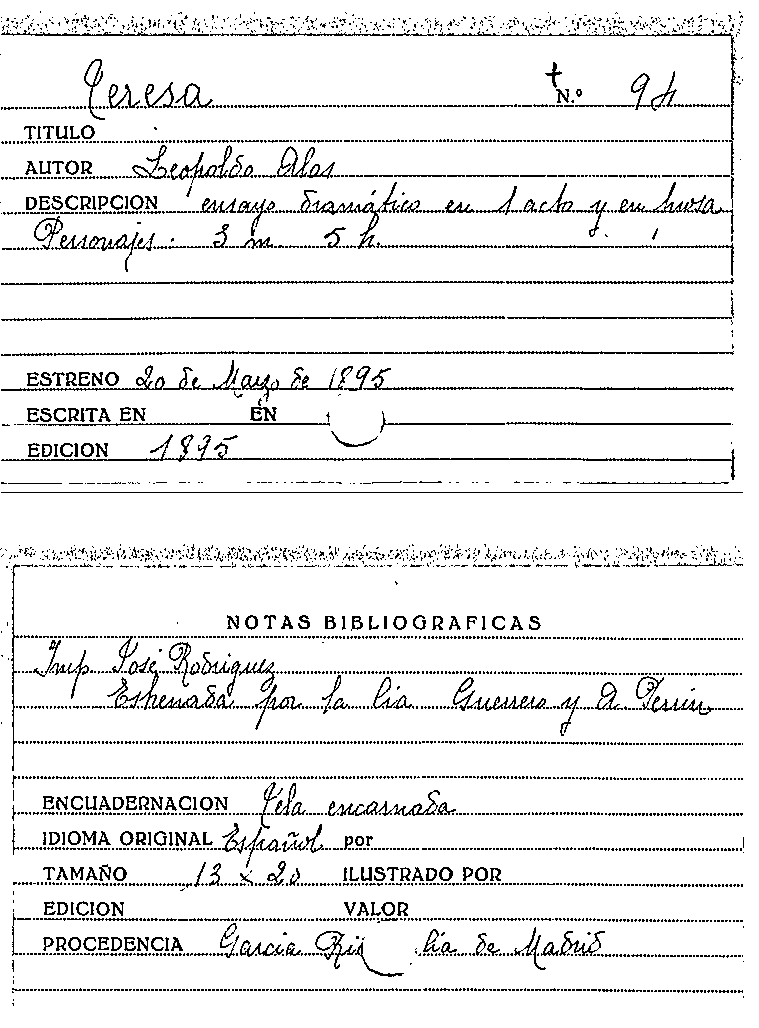 Teresa
N.º 94
TITULO
AUTOR Leopoldo Alas
DESCRIPCION ensayo dramático en 1 acto y en prosa
Personajes: 3 m. 5 h.
ESTRENO 20 de Marzo de 1895
ESCRITA EN EN
EDICION 1895
NOTAS BIBLIOGRAFICAS
Imp José Rodriguez
Estrenada por la Cia Guerrero y A
ENCUADERNACION Tela encarnada
IDIOMA ORIGINAL Español por
TAMAÑO 13 x 20 ILUSTRADO POR
EDICION VALOR
PROCEDENCIA Garcia Cia de Madrid